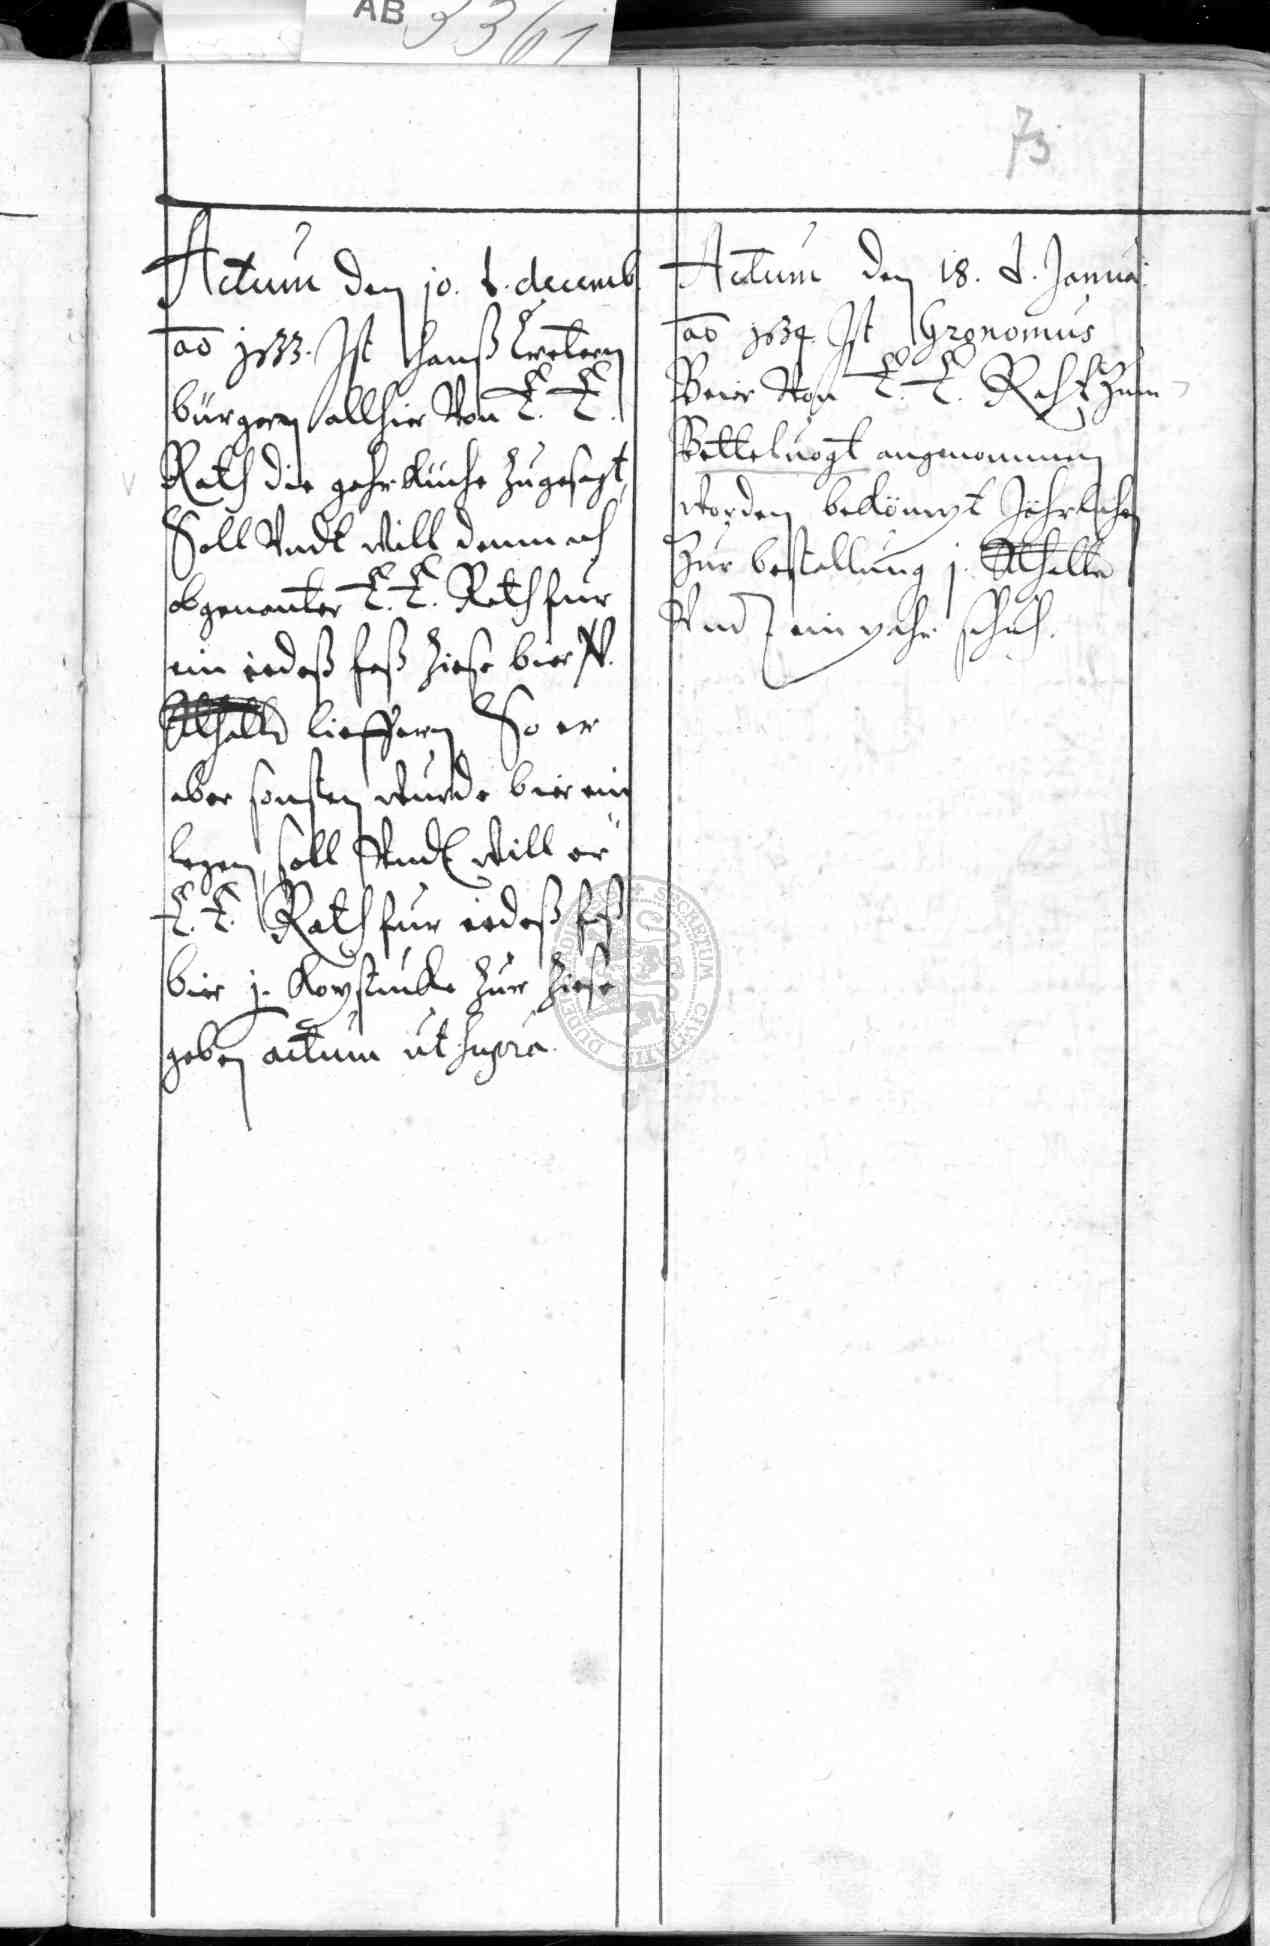 AB 3361
73
Actum den 10. t. decemb.
ao 1633. Ist Hanß
bürgern allhier Von E. E.
Rath die gahrküche zugesagt
Soll Vndt will dennach
obgenanter E. E. Rath fur
ein iedeß faß Ziese bier
lieffern, So er
aber sonsten wurde bier ein
legen, soll Vndt will er
E. E. Rath fur iedeß faß
bier j. Zur Ziese
geben actum ut supra.
Actum den 18. t. Janua:
ao 1634. Ist Gronomus
Beier Von E. E. Raht Zum
Bettelvogt angenommen
worden bekömpt Jährlichen
Zur bestallung j.
Vnd ein pahr schuh.
SECRETUM CIVITATIS DUDER